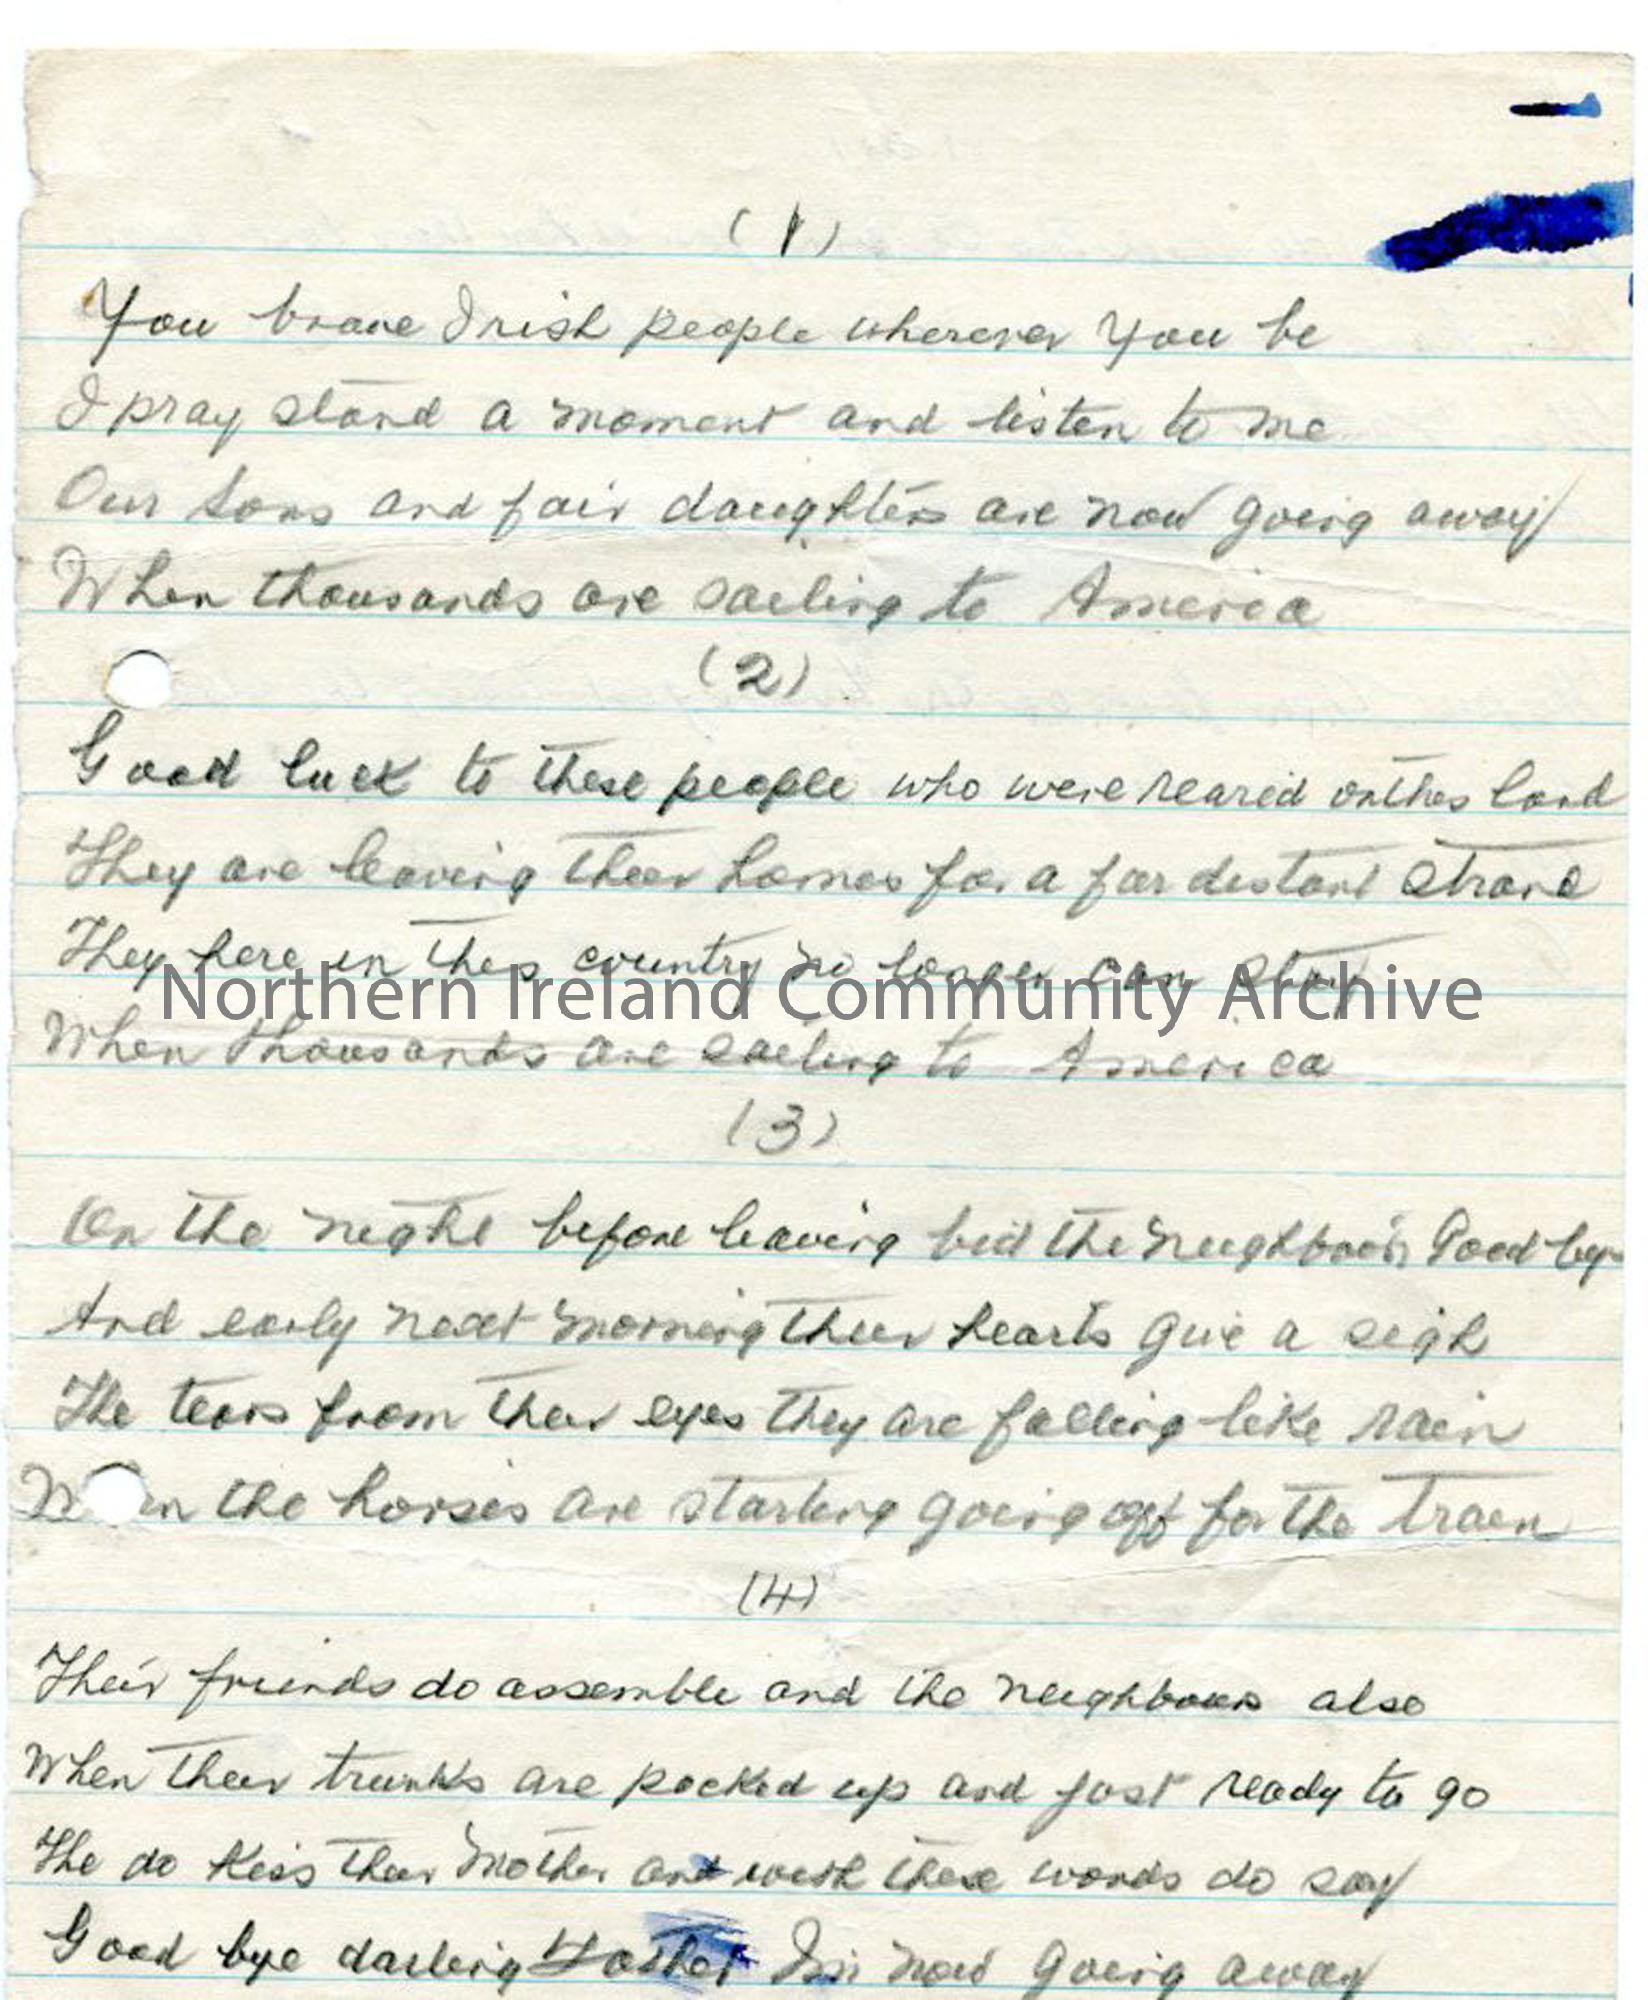 (1)
You brave Irish people wherever you be
I pray stand a moment and listen to me
Our sons and fair daughters are now going away
When thousands are sailing to America
(2)
Good luck to these people who were reared on this land
They are leaving their homes for a far distant strand
They here in this country no longer can stay
Northern Ireland Community Archive
When thousands are sailing to America
(3)
On the night before leaving bid the neighbours Good bye
And early next morning their hearts give a sigh
The tears from their eyes they are falling like rain
When the horses are starting going off for the train
(4)
Their friends do assemble and the neighbours also
When their trunks are packed up and just ready to go
The do kiss their Mother and with these words do say
Good bye darling Father I'm now going away